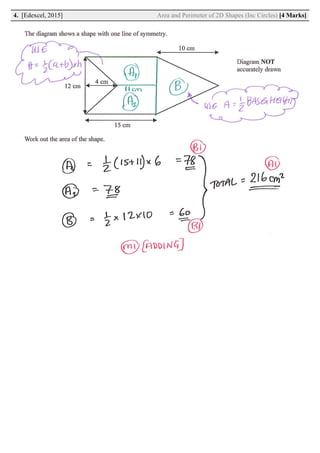 4. [Edexcel, 2015] Area and Perimeter of 2D Shapes (Inc Circles) [4 Marks]
The diagram shows a shape with one line of symmetry.
USE
A = ½(a+b)xh
10 cm
Diagram NOT
accurately drawn
A₁
4 cm
11cm
12 cm
A₂
B
USE A = ½ BASExHEIGHT
15 cm
Work out the area of the shape.
B1
A₁ = ½(15+11)x6 = 78
A1
A₂ = 78
TOTAL = 216 cm²
B = ½ x 12x10 = 60
B1
M1 [ADDING]